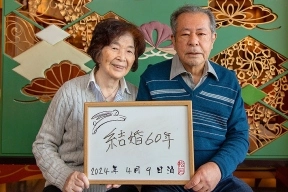 結婚60年
2024年 4月 9日